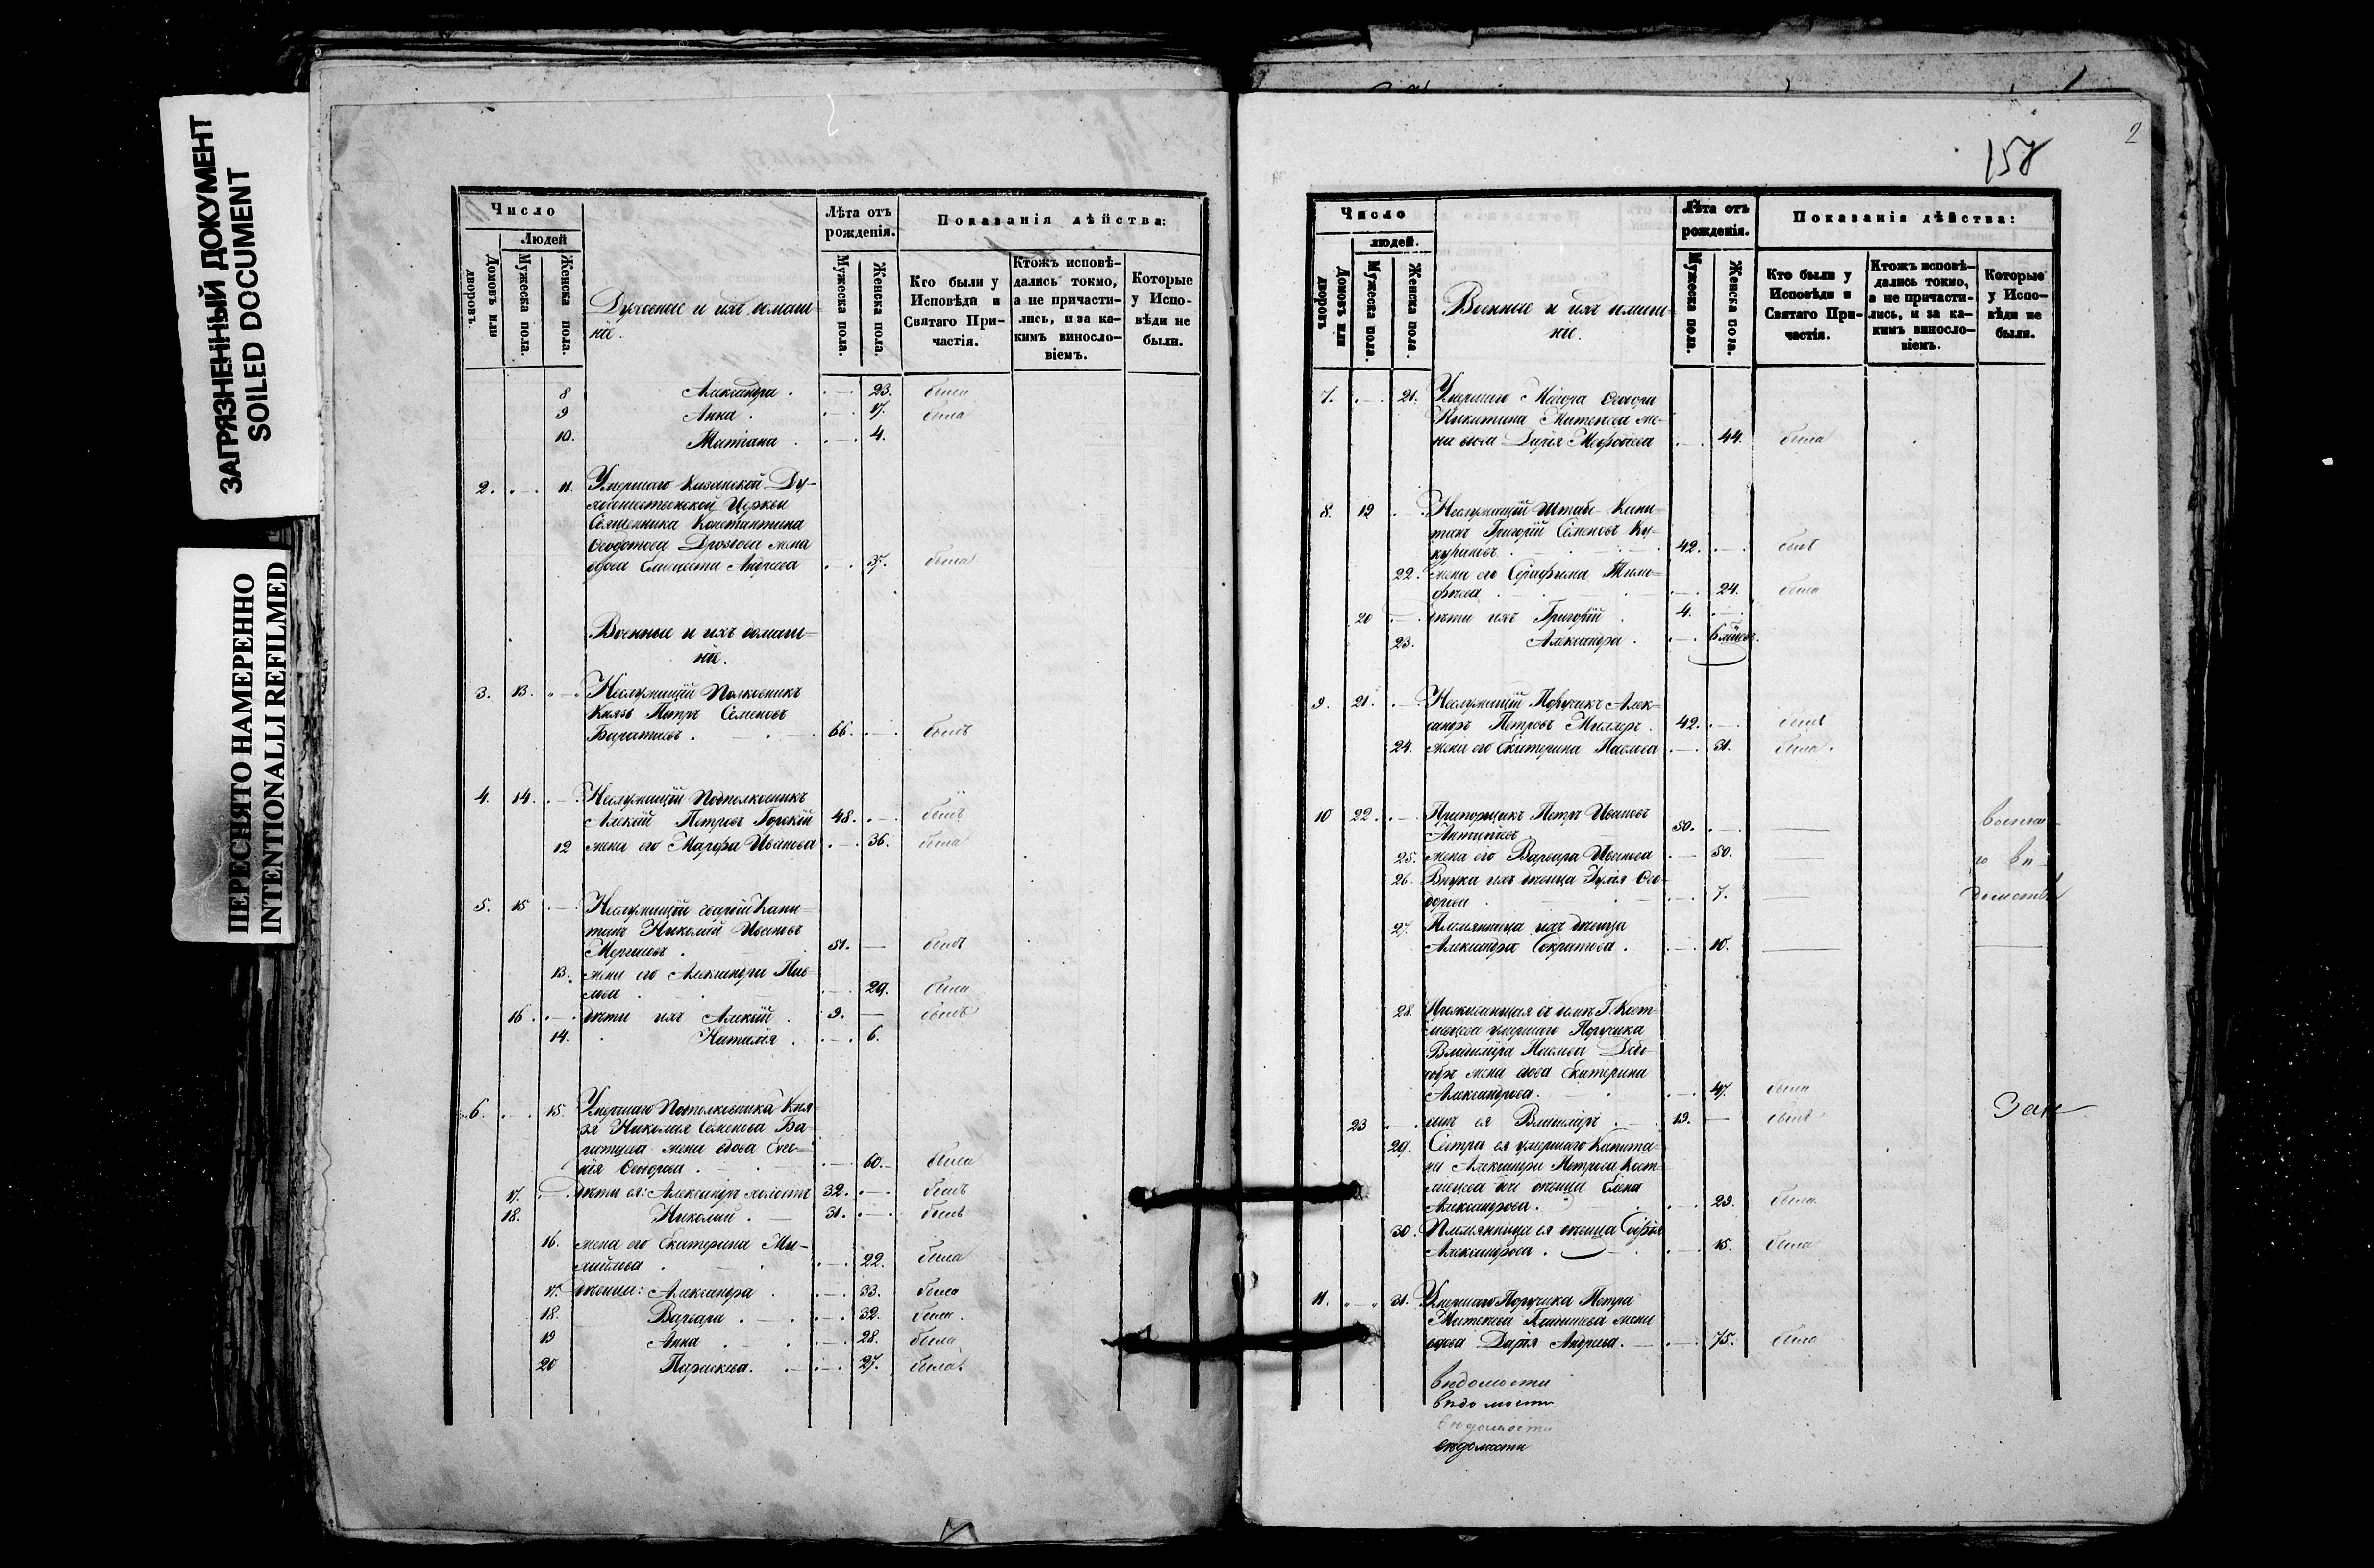 ЗАГРЯЗНЕННЫЙ ДОКУМЕНТ
SOILED DOCUMENT
ПЕРЕСНЯТО НАМЕРЕННО
INTENTIONALLI REFILMED
Число
Людей
Домовъ или дворовъ.
Мужеска пола.
Женска пола.
Духовные и ихъ домаш-
ніе.
Лѣта отъ
рожденія.
Мужеска пола.
Женска пола.
Показанія дѣйства:
Кто были у
Исповѣди и
Святаго При-
частія.
Ктожъ исповѣ-
дались токмо,
а не причасти-
лись, и за ка-
кимъ виносло-
віемъ.
Которые
у Испо-
вѣди не
были.
8 Александра . 23. была
9 Анна . 17. была
10. Татіана . 4.
2. 11. Умершаго Казанской Ду-
Церкви
Священника Константина
Ѳеодотова Дроздова жена
вдова Андреева 37. была
Военные и ихъ домаш-
ніе.
3. 13. Неслужащій Полковникъ
Князь Петръ Семеновъ
Баратаевъ . 66. былъ
4. 14. Неслужащій Подполковникъ
Алексѣй Петровъ Горскій 48. былъ
12 жена его Марфа Иванова 36. была
5. 15 Неслужащій Капи-
танъ Николай Ивановъ
51. былъ
13. жена его Александра Пав-
лова . 29. была
16. дѣти ихъ Алексѣй . 9. былъ
14. Наталія . 6.
6. 15. Умершаго Подполковника Кня-
зя Николая Семенова Ба-
ратаева жена вдова Евге-
нія Ѳеодорова . 60. была
17. дѣти ея: Александръ холостъ 32. былъ
18. Николай . 31. былъ
16. жена его Екатерина Ми-
хайлова . 22. была
17. дѣвицы: Александра . 33. была
18. Варвара . 32. была.
19 Анна . 28. была
20 Параскева. 27. была.
2
158
Число
людей.
Домовъ или дворовъ
Мужеска пола.
Женска пола.
Военные и ихъ домаш-
ніе.
Лѣта отъ
рожденія.
Мужеска пола.
Женска пола.
Показанія дѣйства:
Кто были у
Исповѣди и
Святаго При-
частія.
Ктожъ исповѣ-
дались токмо,
а не причасти-
лись, и за ка-
кимъ виносло-
віемъ.
Которые
у Испо-
вѣди не
были.
7. 21. Умершаго Маіора Ѳеодора
Никитина же-
на вдова Дарія 44. была
8. 19 Неслужащій Штабс-Капи-
танъ Григорій Семеновъ
42. былъ
22. жена его Серафима Тимо-
феева 24. была
20 дѣти ихъ Григорій . 4.
23. Александра . 6 мѣсяц.
9. 21. Неслужащій Поручикъ Алек-
сандръ Петровъ Миллеръ . 42. былъ
24. жена его Екатерина Павлова 31. была.
10 22. Прапорщикъ Петръ Ивановъ
50. военна-
25. жена его Варвара Иванова 50. го вѣ-
26. Внука ихъ дѣвица Юлія Ѳео-
дорова 7. домства
27. Племянница ихъ дѣвица
Александра Сократова . 10.
28. Проживающая въ домѣ Г. Кост-
умершаго Поручика
Владиміра Павлова
жена вдова Екатерина
Александрова. 47. была
23 сынъ ея Владиміръ . 19. былъ
Зак
29. Сестра ея умершаго Капита-
на Александра Петрова Кост-
дѣвица Елена
Александрова. 29. была
30. Племянница ея дѣвица Софія
Александрова . 15. была
11. 31. Умершаго Поручика Петра
Матвѣева жена
вдова Дарія Андреева. 75. была
вѣдомости
вѣдомости
вѣдомости
вѣдомости